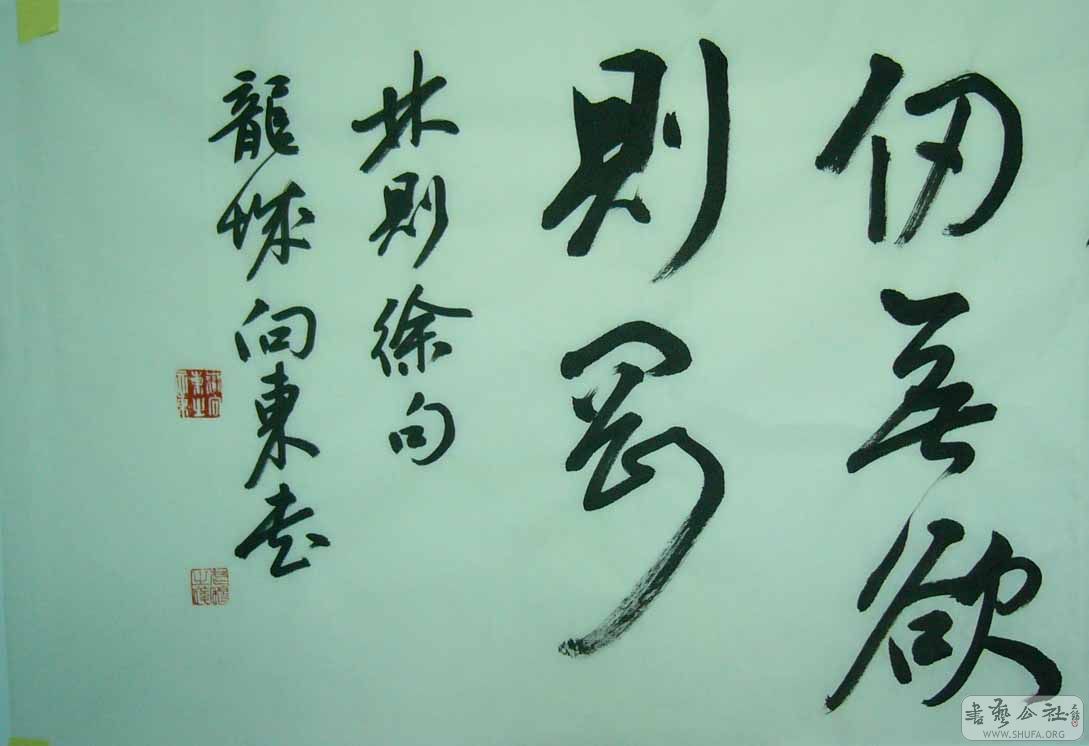 仞無欲
則剛
林則徐句
龍城向東書
書藝公社
WWW.SHUFA.ORG